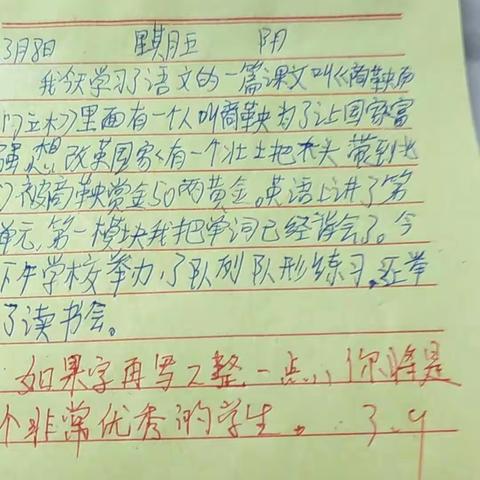 3月8日 星期五 阴
我今天学习了语文的一篇课文叫《商鞅南
门立木》里面有一个人叫商鞅为了让国家富
强,想改革国家《有一个壮士把木头带到北
门被商鞅赏金50两黄金。英语上讲了第
单元,第一模块我把单词已经背会了。今
下午学校举办了队列队形练习,还举
了读书会。
如果字再写工整一点,你将是
个非常优秀的学生。 3.9